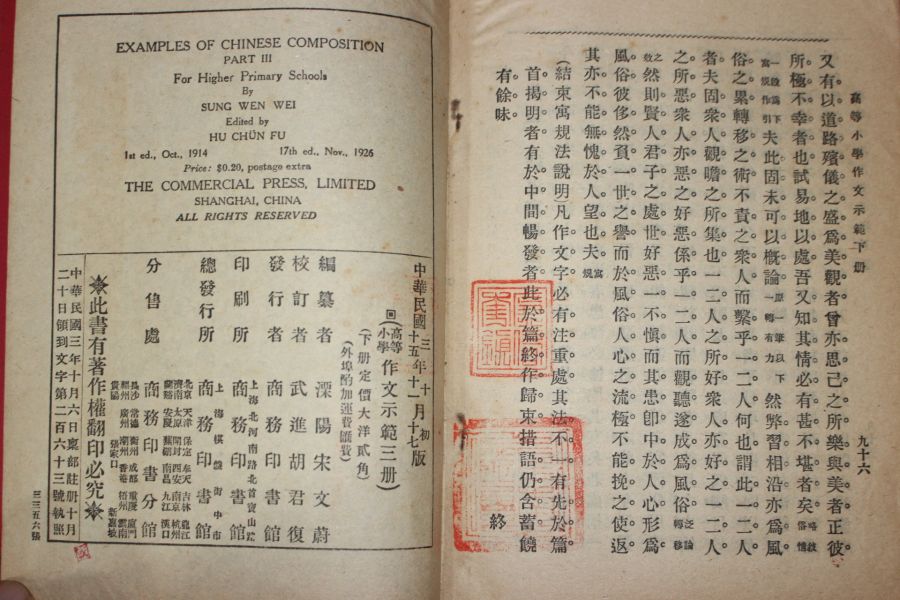 高等小學作文示範下册
九十六
又有以道路殯儀之盛爲美觀者。曾亦思己之所樂與美者。正彼
所極不幸者也。試易地以處。吾又知其情必有甚不堪者矣。略敍俗情
一段爲下寓規作引夫此固未可以概論。一筆以下一原一轉有力然弊習相沿。亦爲風
俗之累。轉移之術。不責之衆人而繫乎一二人何也。謂此一二人
者。夫固衆人觀瞻之所集也。一二人之所好。衆人亦好之。一二人
之所惡。衆人亦惡之。好惡係乎一二人。而觀聽遂成爲風俗。泛論轉移
之效然則賢人君子之處世。好惡一不愼。而其患卽中於人心。形爲
風俗。彼侈然負一世之譽。而於風俗人心之流極。不能挽之使返。
其亦不能無愧於人望也夫。寓規
(結束寓規法說明)凡作文字。必有注重處。其法不一。有先於篇
首揭明者。有於中間暢發者。此於篇終作歸束。措語仍含蓄饒
有餘味。
終
EXAMPLES OF CHINESE COMPOSITION
PART III
For Higher Primary Schools
By
SUNG WEN WEI
Edited by
HU CHÜN FU
1st ed., Oct., 1914 17th ed., Nov., 1926
Price: $0.20, postage extra
THE COMMERCIAL PRESS, LIMITED
SHANGHAI, CHINA
ALL RIGHTS RESERVED
中華民國三年十月初版
十五年十一月十七版
(高等小學作文示範三册)
(下册定價大洋貳角)
(外埠酌加運費匯費)
編纂者 溧陽宋文蔚
校訂者 武進胡君復
發行者 商務印書館
印刷所 上海北河南路北首寶山路 商務印書館
總發行所 上海棋盤街中市 商務印書館
分售處 商務印書分館
北京 天津 保定 奉天 吉林 龍江
濟南 太原 開封 西安 南京 杭州
蘭谿 安慶 蕪湖 南昌 九江 漢口
長沙 常德 衡州 成都 重慶 廈門
福州 廣州 潮州 香港 梧州 雲南
貴陽 張家口 新嘉坡
此書有著作權翻印必究
中華民國三年十月六日稟部註册十月
二十日領到文字第二百六十三號執照
三三五六張